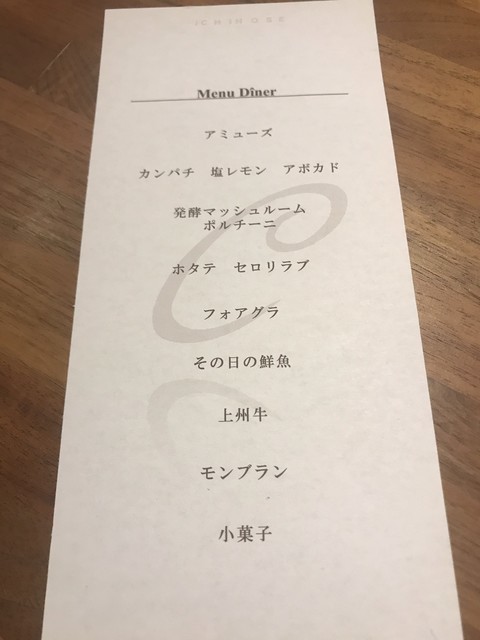 ICHINOSE
Menu Dîner
アミューズ
カンパチ　塩レモン　アボカド
発酵マッシュルーム
ポルチーニ
ホタテ　セロリラブ
フォアグラ
その日の鮮魚
上州牛
モンブラン
小菓子